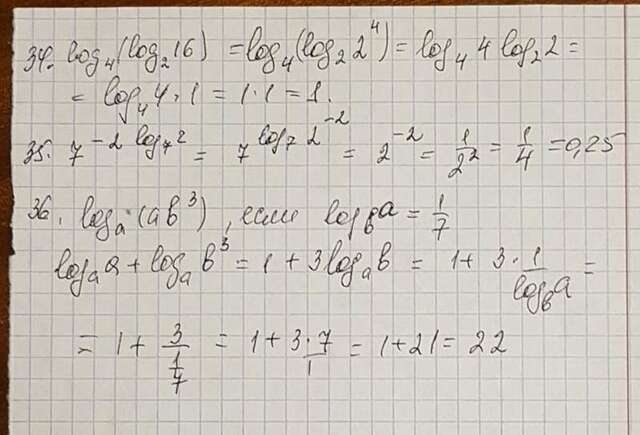 34. log₄(log₂16) = log₄(log₂2⁴) = log₄4 log₂2 =
= log₄4 · 1 = 1 · 1 = 1.
35. 7^(-2 log₇2) = 7^(log₇2^(-2)) = 2⁻² = 1/2² = 1/4 = 0,25
36. logₐ(ab³), если log_b a = 1/7
logₐa + logₐb³ = 1 + 3logₐb = 1 + 3 · 1/log_b a =
= 1 + 3/(1/7) = 1 + 3·7/1 = 1 + 21 = 22